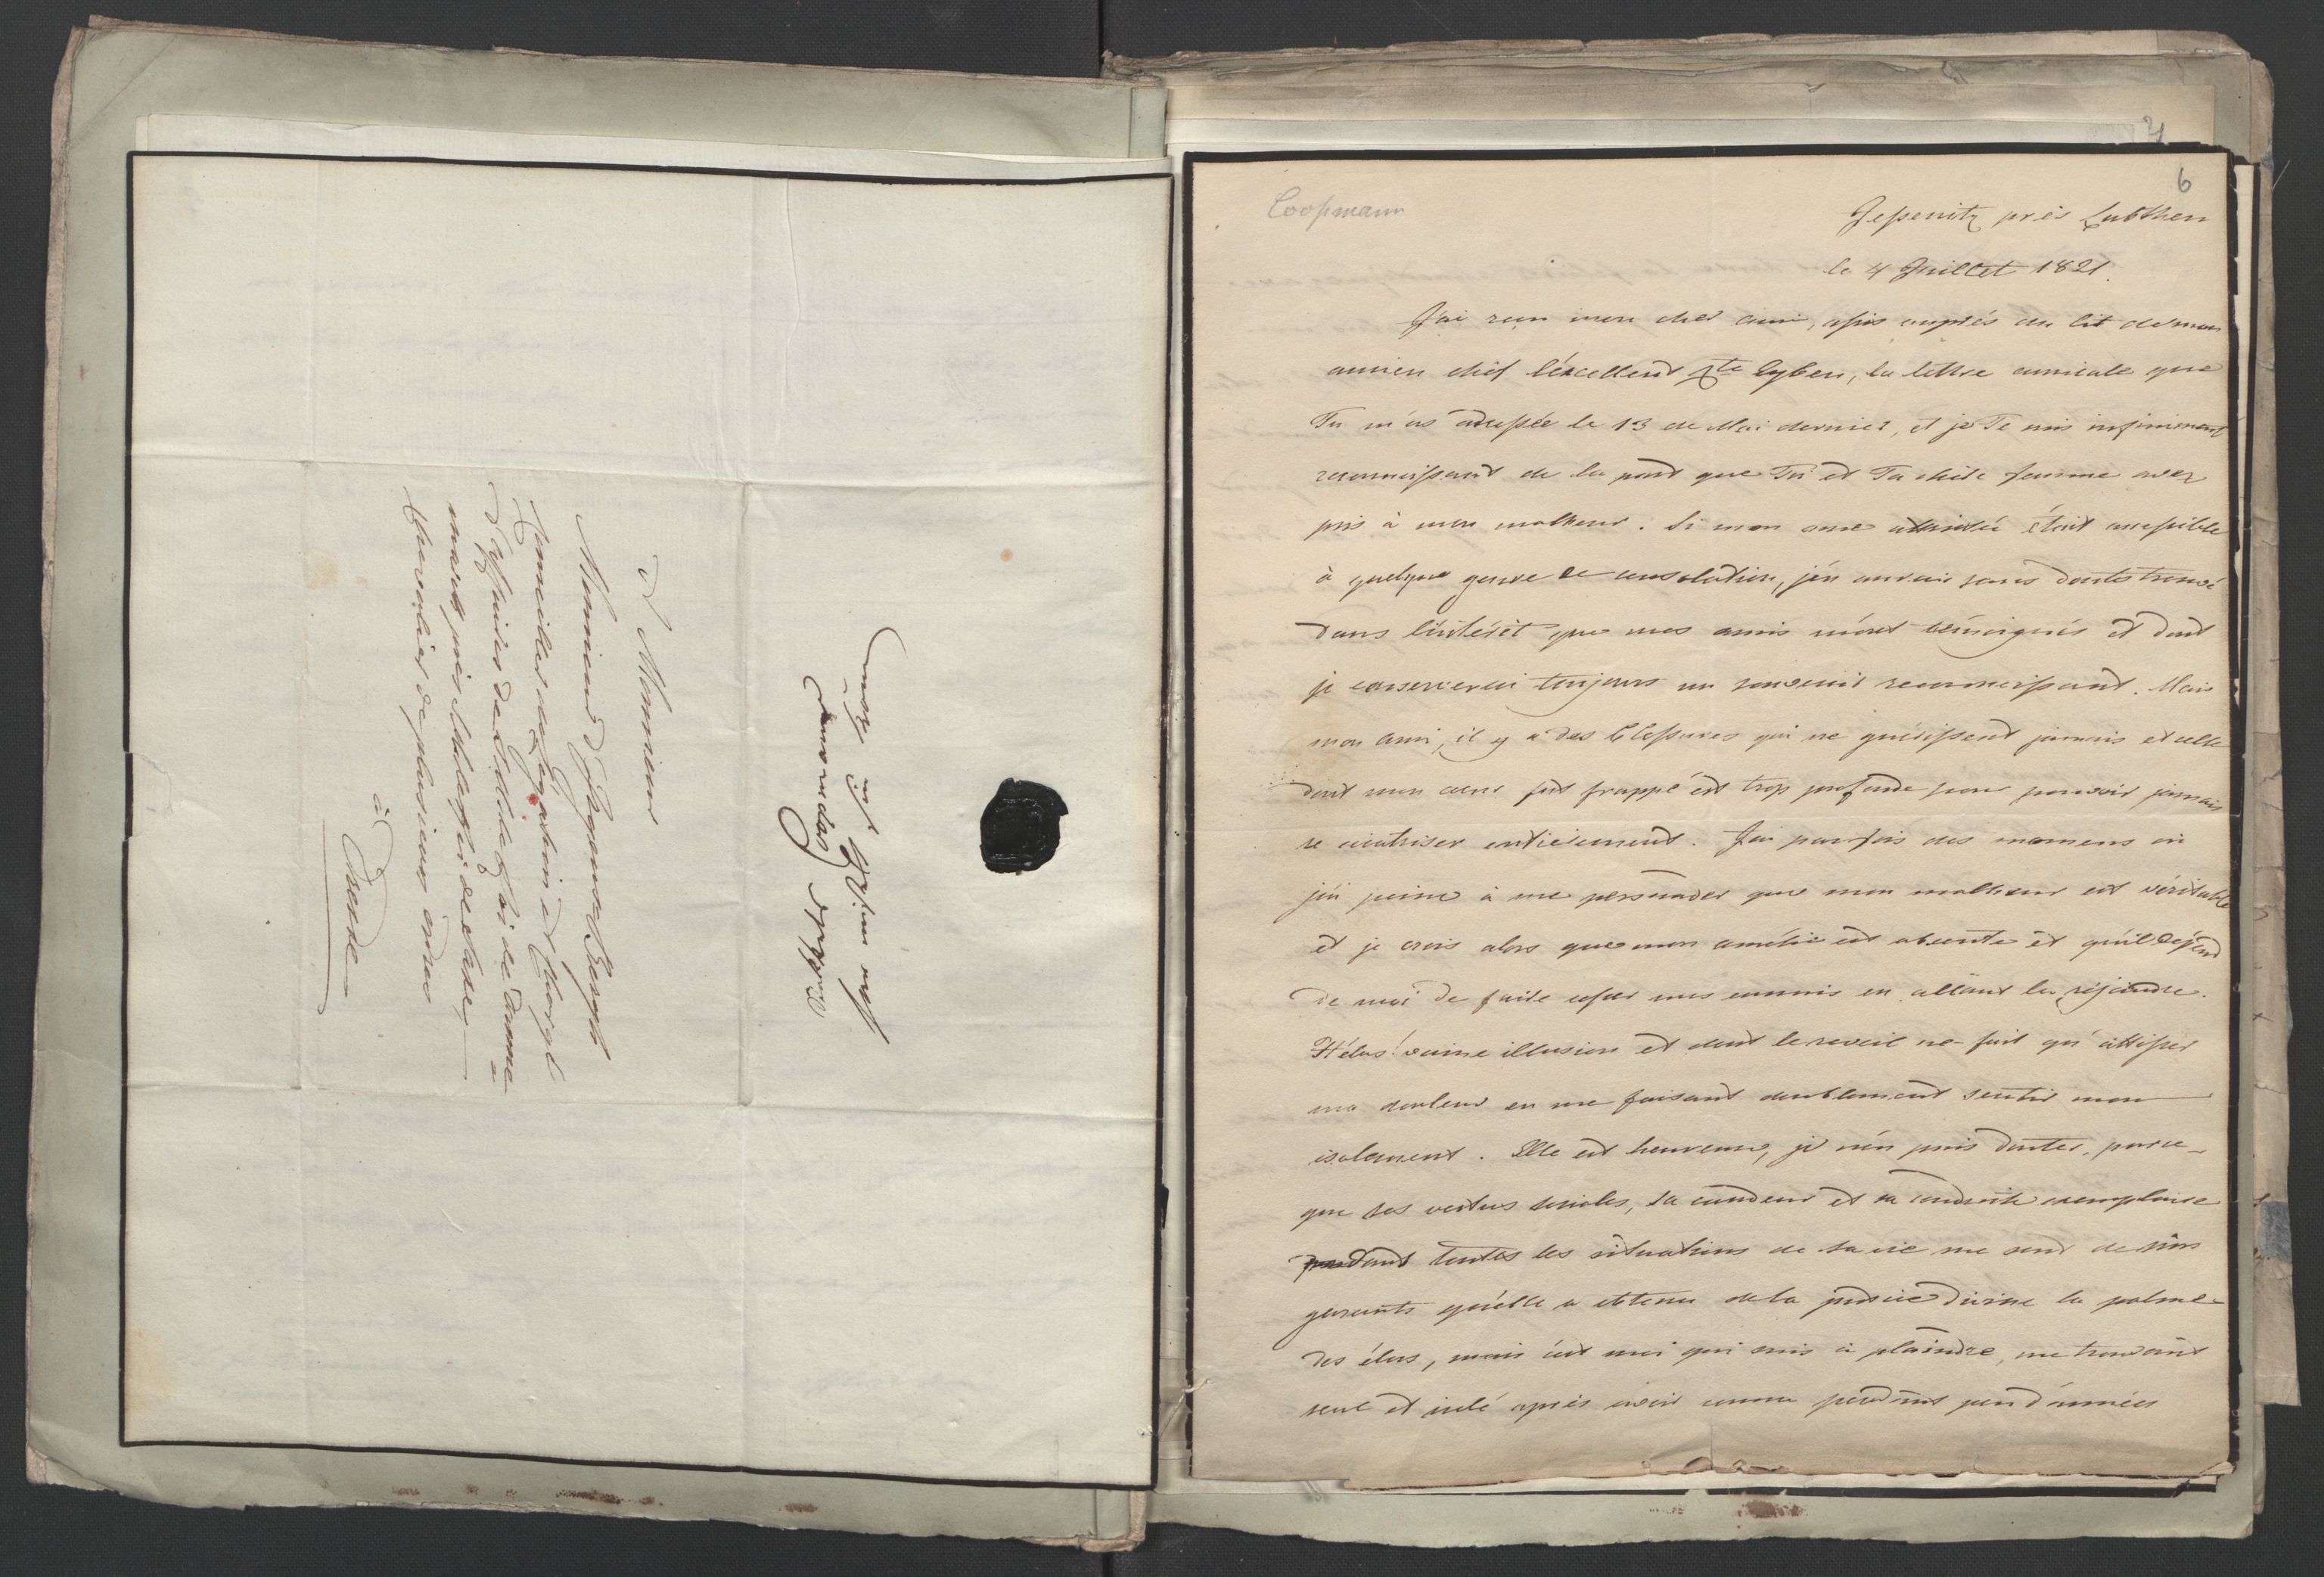 à Monsieur
Monsieur d'Hagerne Bergh
Conseiller de Légation et chargé
d'affaires de S. M. le Roi de Danne=
mark près S. M. le Roi de Saxe,
chevalier de plusieurs ordres
à
Dresde
6
Coopmann
Jessenitz près Lubthen
le 4 Juillet 1821.
J'ai reçu mon cher ami, assis auprès du lit de mon
ancien chêf l'éxcellent Cte Eyben, la lettre amicale que
Tu m'as adressée le 13 de Mai dernier, et je Te suis infiniment
reconnoissant de la part que Tu et Ta chère femme avez
pris à mon malheur. Si mon ame attristée étoit accessible
à quelque genre de consolation, j'én aurais sans doute trouvé
dans l'intérêt que mes amis m'ont témoignés et dont
je conserverai toujours un souvenir reconnoissant. Mais
mon ami, il y a des blessures qui ne guérissent jamais et celle
dont mon coeur fut frappé ést trop profonde pour pouvoir jamais
se cicatriser entièrement. J'ai parfois des momens où
j'ai peine à me persuader que mon malheur est véritable
et je crois alors que mon amélie est absente et qu'il dépend
de moi de faire cesser mes ennuis en allant la rejoindre.
Hélas! vaine illusion et dont le reveil ne fait qu'attiser
ma douleur en me faisant doublement sentir mon
isolement. Elle est heureuse, je n'én puis douter, parce-
que ses vertus sociales, sa candeur et sa conduite exemplaire
dans toutes les situations de sa vie me sont de sûrs
garants qu'élle a obtenu de la justice divine la palme
des élus, mais c'ést moi qui suis à plaindre, me trouvant
seul et isolé après avoir connu pendant peu d'années